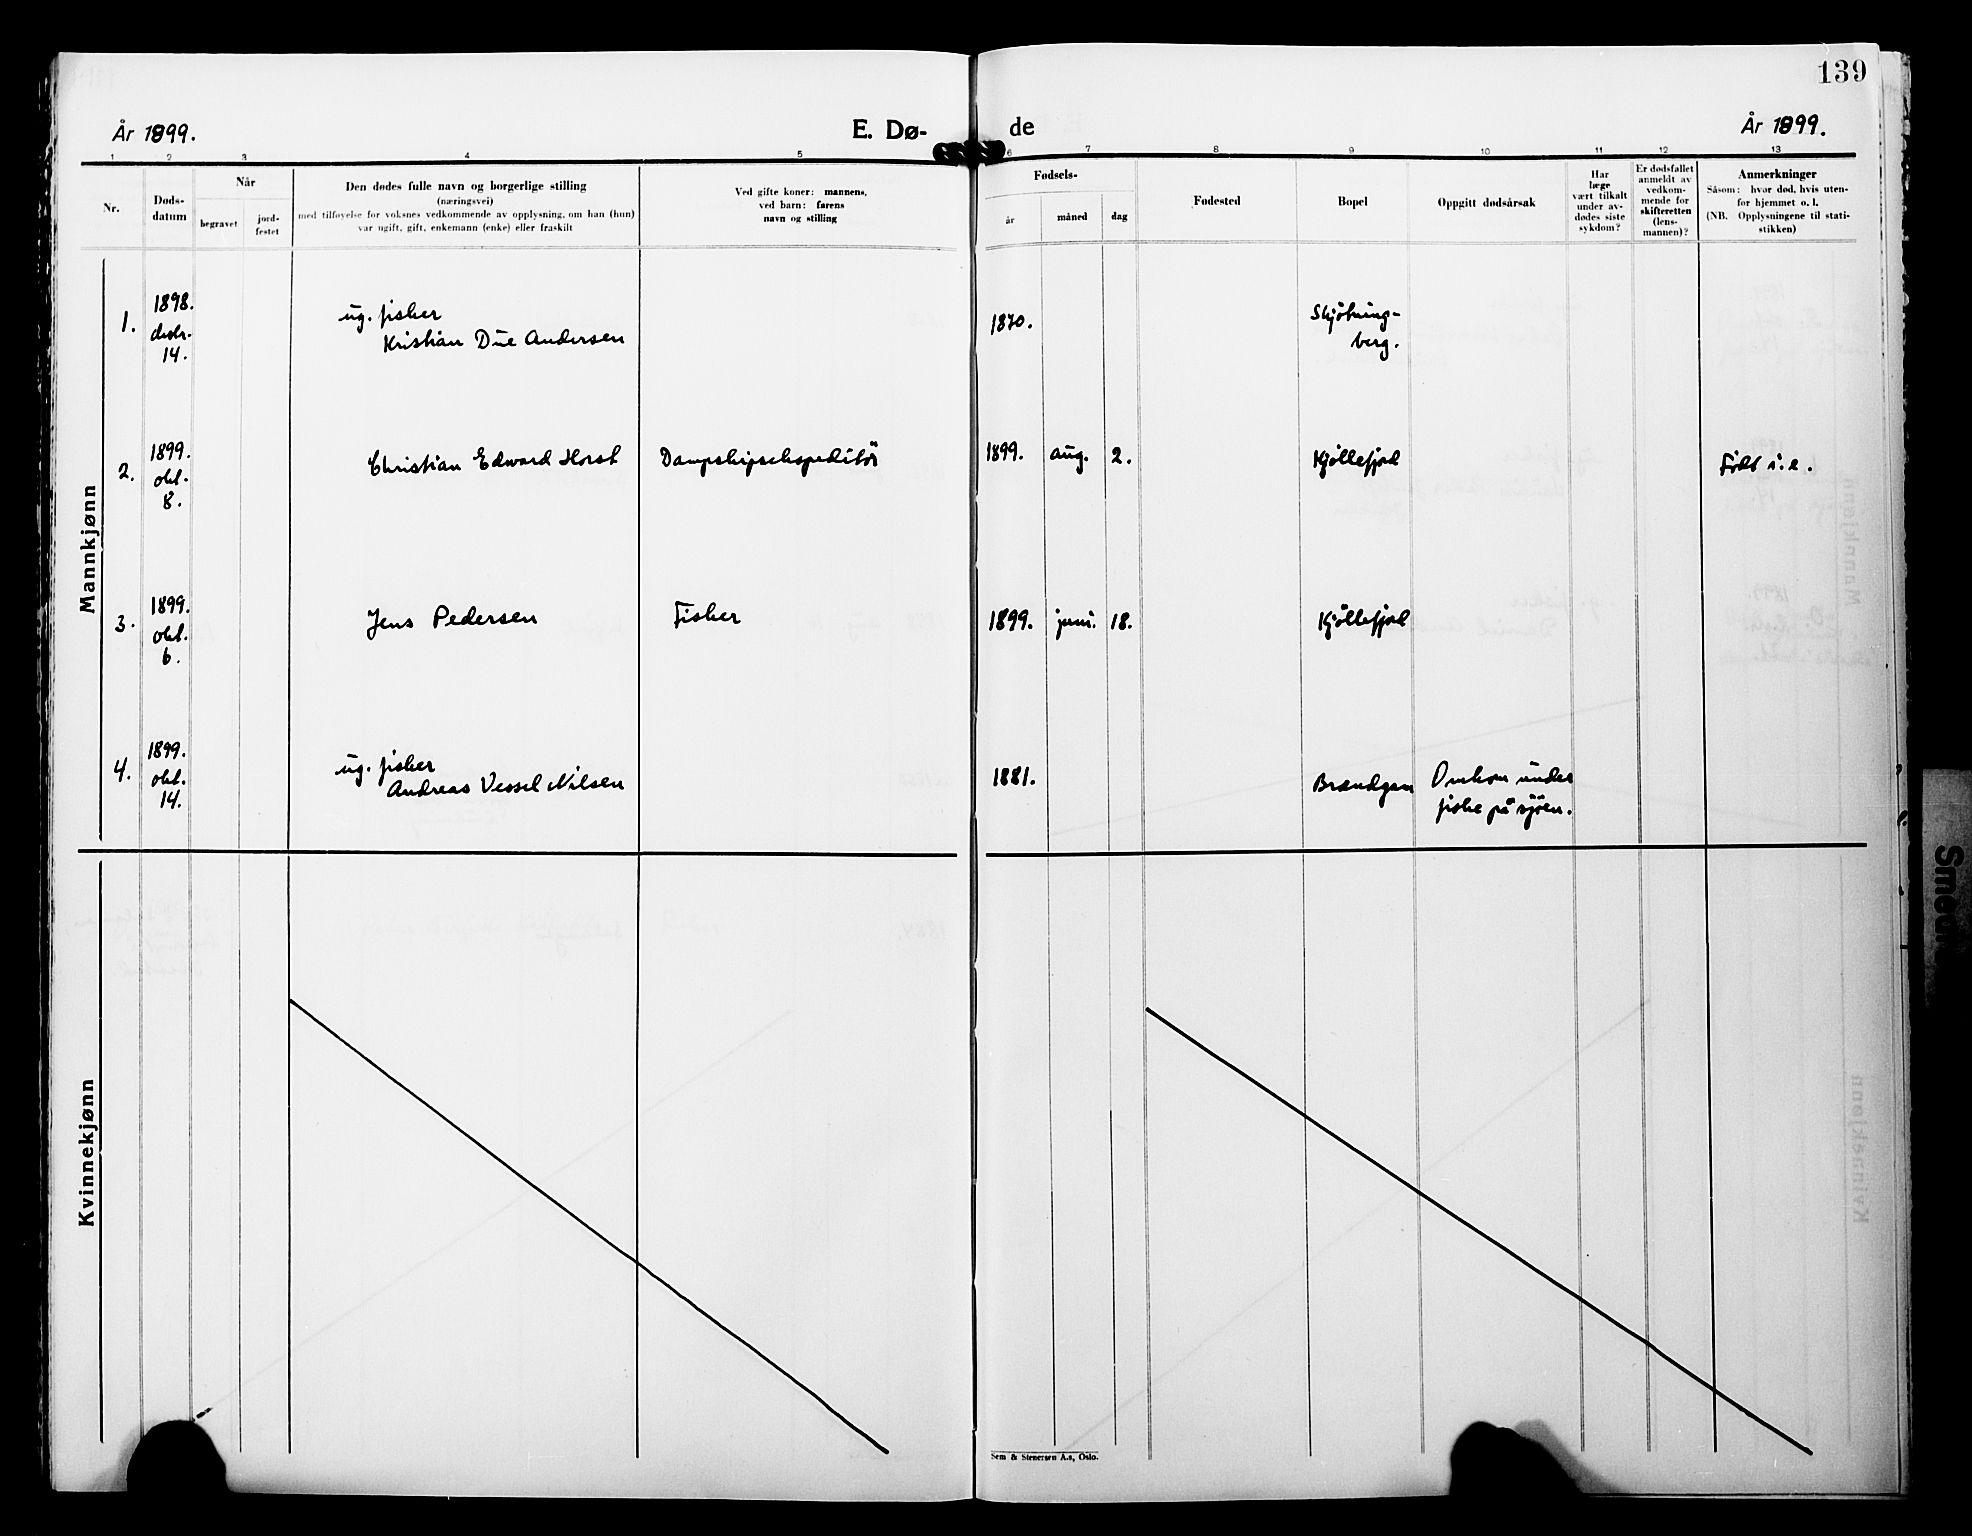 139
År 1899.
E. Dø-
de
År 1899.
1 2 3 4 5 6 7 8 9 10 11 12 13
Nr.
Døds-
datum
Når
begravet
jord-
festet
Den dødes fulle navn og borgerlige stilling
(næringsvei)
med tilføyelse for voksnes vedkommende av opplysning, om han (hun)
var ugift, gift, enkemann (enke) eller fraskilt
Ved gifte koner: mannens,
ved barn: farens
navn og stilling
Fødsels-
år
måned
dag
Fødested
Bopel
Oppgitt dødsårsak
Har
læge
vært tilkalt
under av-
dødes siste
sykdom?
Er dødsfallet
anmeldt av
vedkom-
mende for
skifteretten
(lens-
mannen)?
Anmerkninger
Såsom: hvor død, hvis uten-
for hjemmet o. l.
(NB. Opplysningene til stati-
stikken)
Mannkjønn
1.
1898.
desbr.
14.
ug. fisker
Kristian Due Andersen
1870.
Skjötning-
berg.
2.
1899.
okt.
8.
Christian Edward Horst
Dampskipsekspeditör
1899.
aug.
2.
Kjöllefjord
Födt u.e.
3.
1899.
okt.
6.
Jens Pedersen
Fisker
1899.
juni.
18.
Kjöllefjord
4.
1899.
okt.
14.
ug. fisker
Andreas Vessel Nilsen
1881.
Brændgam
Omkom under
fiske på sjöen.
Kvinnekjønn
Sem & Stenersen A.s, Oslo.